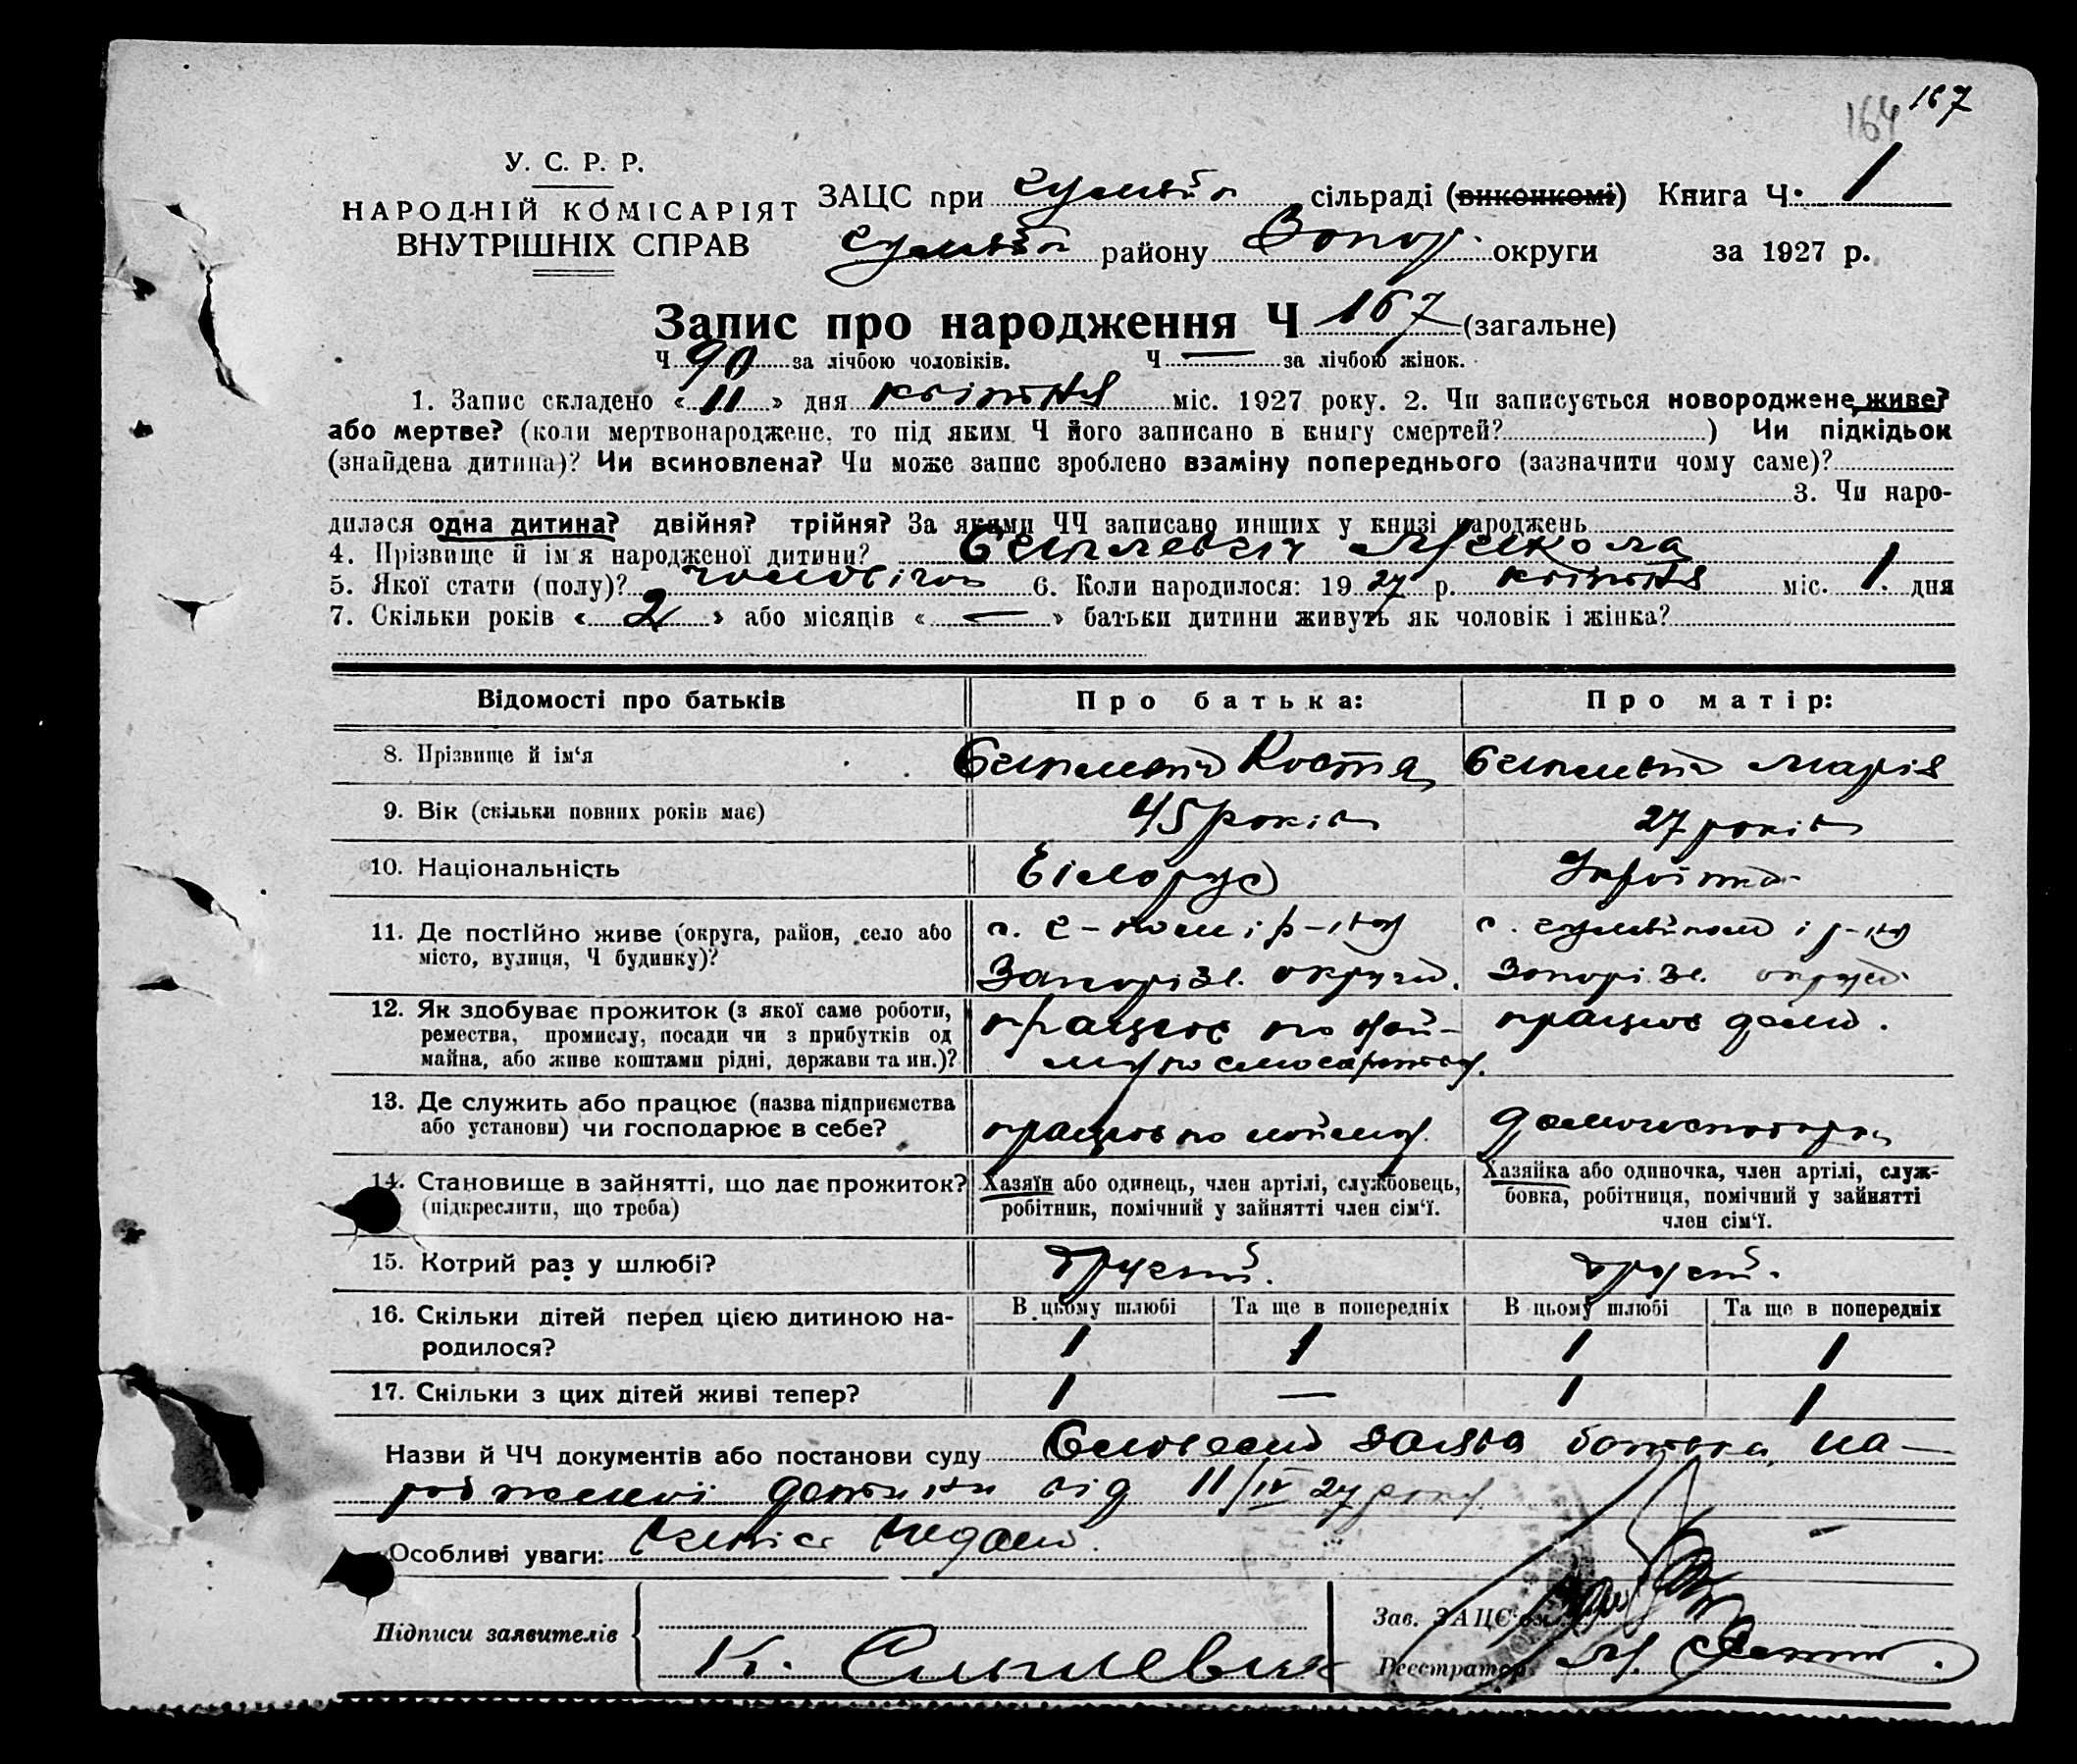 164 167
У. С. Р. Р.
НАРОДНІЙ КОМІСАРІЯТ
ВНУТРІШНІХ СПРАВ
ЗАЦС при сільраді (виконкомі) Книга Ч. 1
району Запор. округи за 1927 р.
Запис про народження Ч 167 (загальне)
Ч 90 за лічбою чоловіків. Ч — за лічбою жінок.
1. Запис складено «11» дня квітня міс. 1927 року. 2. Чи записується новороджене живе?
або мертве? (коли мертвонароджене, то під яким Ч його записано в книгу смертей? ) Чи підкідьок
(знайдена дитина)? Чи всиновлена? Чи може запис зроблено взаміну попереднього (зазначити чому саме)?
3. Чи наро-
дилася одна дитина? двійня? трійня? За якими ЧЧ записано инших у книзі народжень
4. Прізвище й ім'я народженої дитини? Микола
5. Якої стати (полу)? чоловічої 6. Коли народилося: 1927 р. квітня міс. 1. дня
7. Скільки років «2» або місяців «—» батьки дитини живуть як чоловік і жінка?
Відомості про батьків Про батька: Про матір:
8. Прізвище й ім'я Костя Марія
9. Вік (скільки повних років має) 45 років 27 років
10. Національність Білорус Українка
11. Де постійно живе (округа, район, село або
місто, вулиця, Ч будинку)?
с. і р-ну с. і р-ну
Запоріз. округи. Запоріз. округи
12. Як здобуває прожиток (з якої саме роботи,
ремества, промислу, посади чи з прибутків од
майна, або живе коштами рідні, держави та ин.)?
працює по най-
му по працює дома.
13. Де служить або працює (назва підприємства
або установи) чи господарює в себе?
працює по найму. домогосподарка
14. Становище в зайнятті, що дає прожиток?
(підкреслити, що треба)
Хазяїн або одинець, член артілі, службовець,
робітник, помічний у зайнятті член сім'ї.
Хазяйка або одиночка, член артілі, служ-
бовка, робітниця, помічний у зайнятті
член сім'ї.
15. Котрий раз у шлюбі? другий. другий.
16. Скільки дітей перед цією дитиною на-
родилося?
В цьому шлюбі Та ще в попередніх В цьому шлюбі Та ще в попередніх
1 1 1 1
17. Скільки з цих дітей живі тепер? 1 — 1 1
Назви й ЧЧ документів або постанови суду Словесна заява батька, на-
родженні дитини від 11/IV 27 року.
Особливі уваги:
Підписи заявителів
К.
Зав. ЗАЦС'ом
Реєстратор